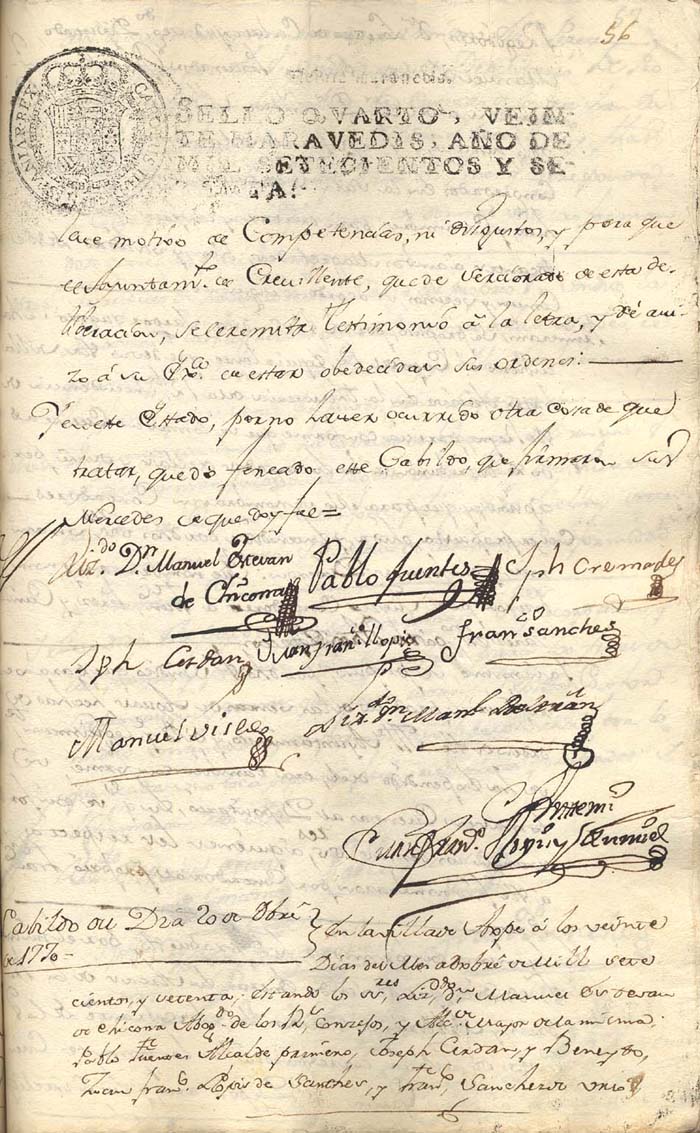 56
SELLO QVARTO, VEIN-
TE MARAVEDIS, AÑO DE
MIL SETECIENTOS Y SE-
TENTA.
motivo de Competencias, ni disgustos, y para que
el Ayuntam.to de Crevillente, quede de esta de-
liberacion, se le remita Testimonio â la letra, y dé avi-
zo â su Ex.ca estar obedecidas sus ordenes:
Yen este Estado, por no haver ocurrido otra cosa de que
tratar, quedó feneado este Cabildo, que firmaron sus
Mercedes de que doy fee =
Liz.do D.n Manuel Estevan
de Chicona
Pablo fuentes
Jph Cremades
Jph Cerdan
Juan fran.co Llopis
fran.co sanches
Manuel
Liz.do D.n Man.l Beltrán
Antemi
Juan Fran.co
Cabildo de Dia 20 de
de 1770
En la villa de Aspe â los veinte
Dias del Mes de de Mill sete
cientos, y setenta; Estando los S.res Liz.do D.n Manuel Estevan
de Chicona Abog.do de los R.s Consejos, y Alc.e Mayor de la misma,
Pablo Fuentes Alcalde primero, Joseph Cerdan, y Beneyto,
Juan fran.co Llópis de Sanches, y Fran.co Sanches